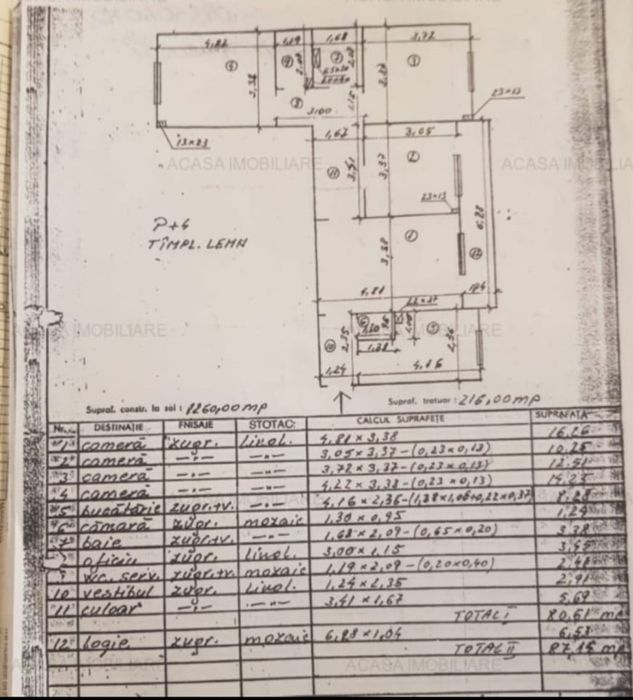 4,22 1,19 1,68 3,72
3,00
23x13
13x23
1,67 3,05
3,41 3,37
ACASA IMOBILIARE ACASA IMOBILIARE
23x13
6,28
P+4
TÎMPL. LEMN
3,38
4,81 1,04
22x37
ACASA IMOBILIARE ACASA IMOBILIARE
2,35
1,30
1,38
1,24 4,16
Supraf. constr. la sol: 1260,00 mp Supraf. trotuar: 216,00 mp
Nr. DESTINAȚIE FINISAJE STOTAC. CALCUL SUPRAFEȚE SUPRAFAȚA
1 cameră zugr. Linol. 4,81 x 3,38 16,26
2 cameră -"- -"- 3,05 x 3,37-(0,23x0,13) 10,25
3 cameră -"- -"- 3,72 x 3,37-(0,23x0,13) 12,51
4 cameră -"- -"- 4,22 x 3,38-(0,23x0,13) 14,23
5 bucătărie zugr.+v. -"- 4,16 x 2,36-(1,38x1,06+0,22x0,37) 8,28
6 cămară zugr. mozaic 1,30 x 0,95 1,24
7 baie zugr.+v. -"- 1,68 x 2,09-(0,65x0,20) 3,38
oficiu zugr. Linol. 3,00 x 1,15 3,45
wc. serv. zugr.+v. mozaic 1,19 x 2,09-(0,20x0,40) 2,41
10 vestibul zugr. Linol. 1,24 x 2,35 2,91
11 culoar -"- -"- 3,41 x 1,67 5,69
TOTAL I 80,61 mp
12 logie zugr. mozaic 6,28 x 1,04 6,53
TOTAL II 87,15 mp
ACASA IMOBILIARE ACASA IMOBILIARE